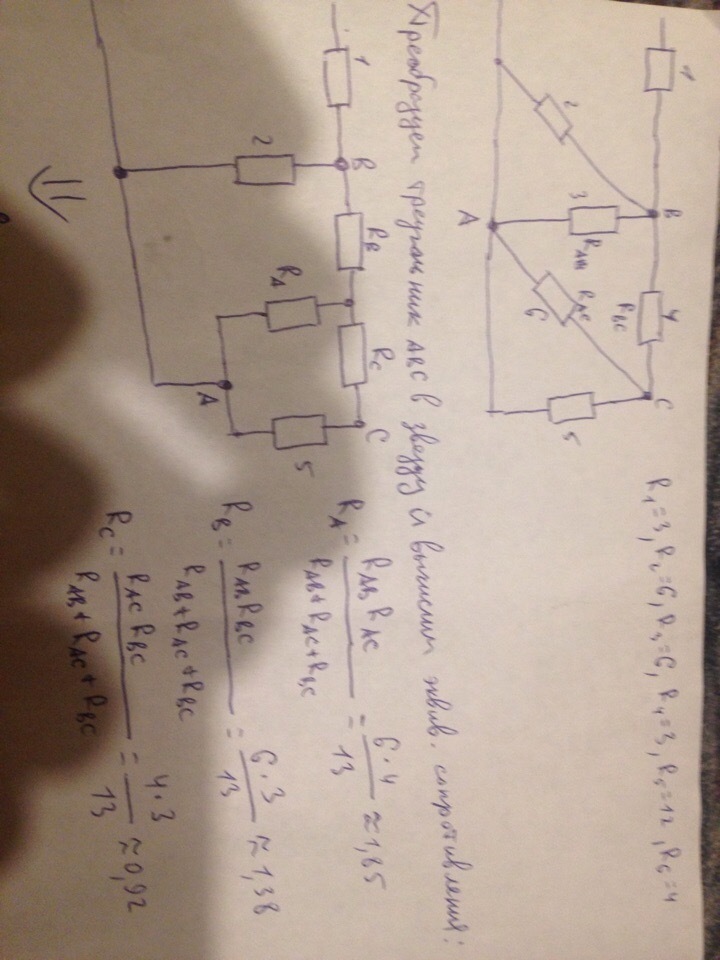 1
B
4
C
R_BC
3
R_AB
2
A
R_AC
6
5
R₁=3, R₂=6, R₃=6, R₄=3, R₅=12, R₆=4
Преобразуем треугольник ABC в звезду и вычислим эквив. сопротивления:
1
B
R_B
R_C
C
2
R_A
A
5
R_A = R_AB R_AC / R_AB + R_AC + R_BC = 6·4 / 13 ≈ 1,85
R_B = R_AB R_BC / R_AB + R_AC + R_BC = 6·3 / 13 ≈ 1,38
R_C = R_AC R_BC / R_AB + R_AC + R_BC = 4·3 / 13 ≈ 0,92